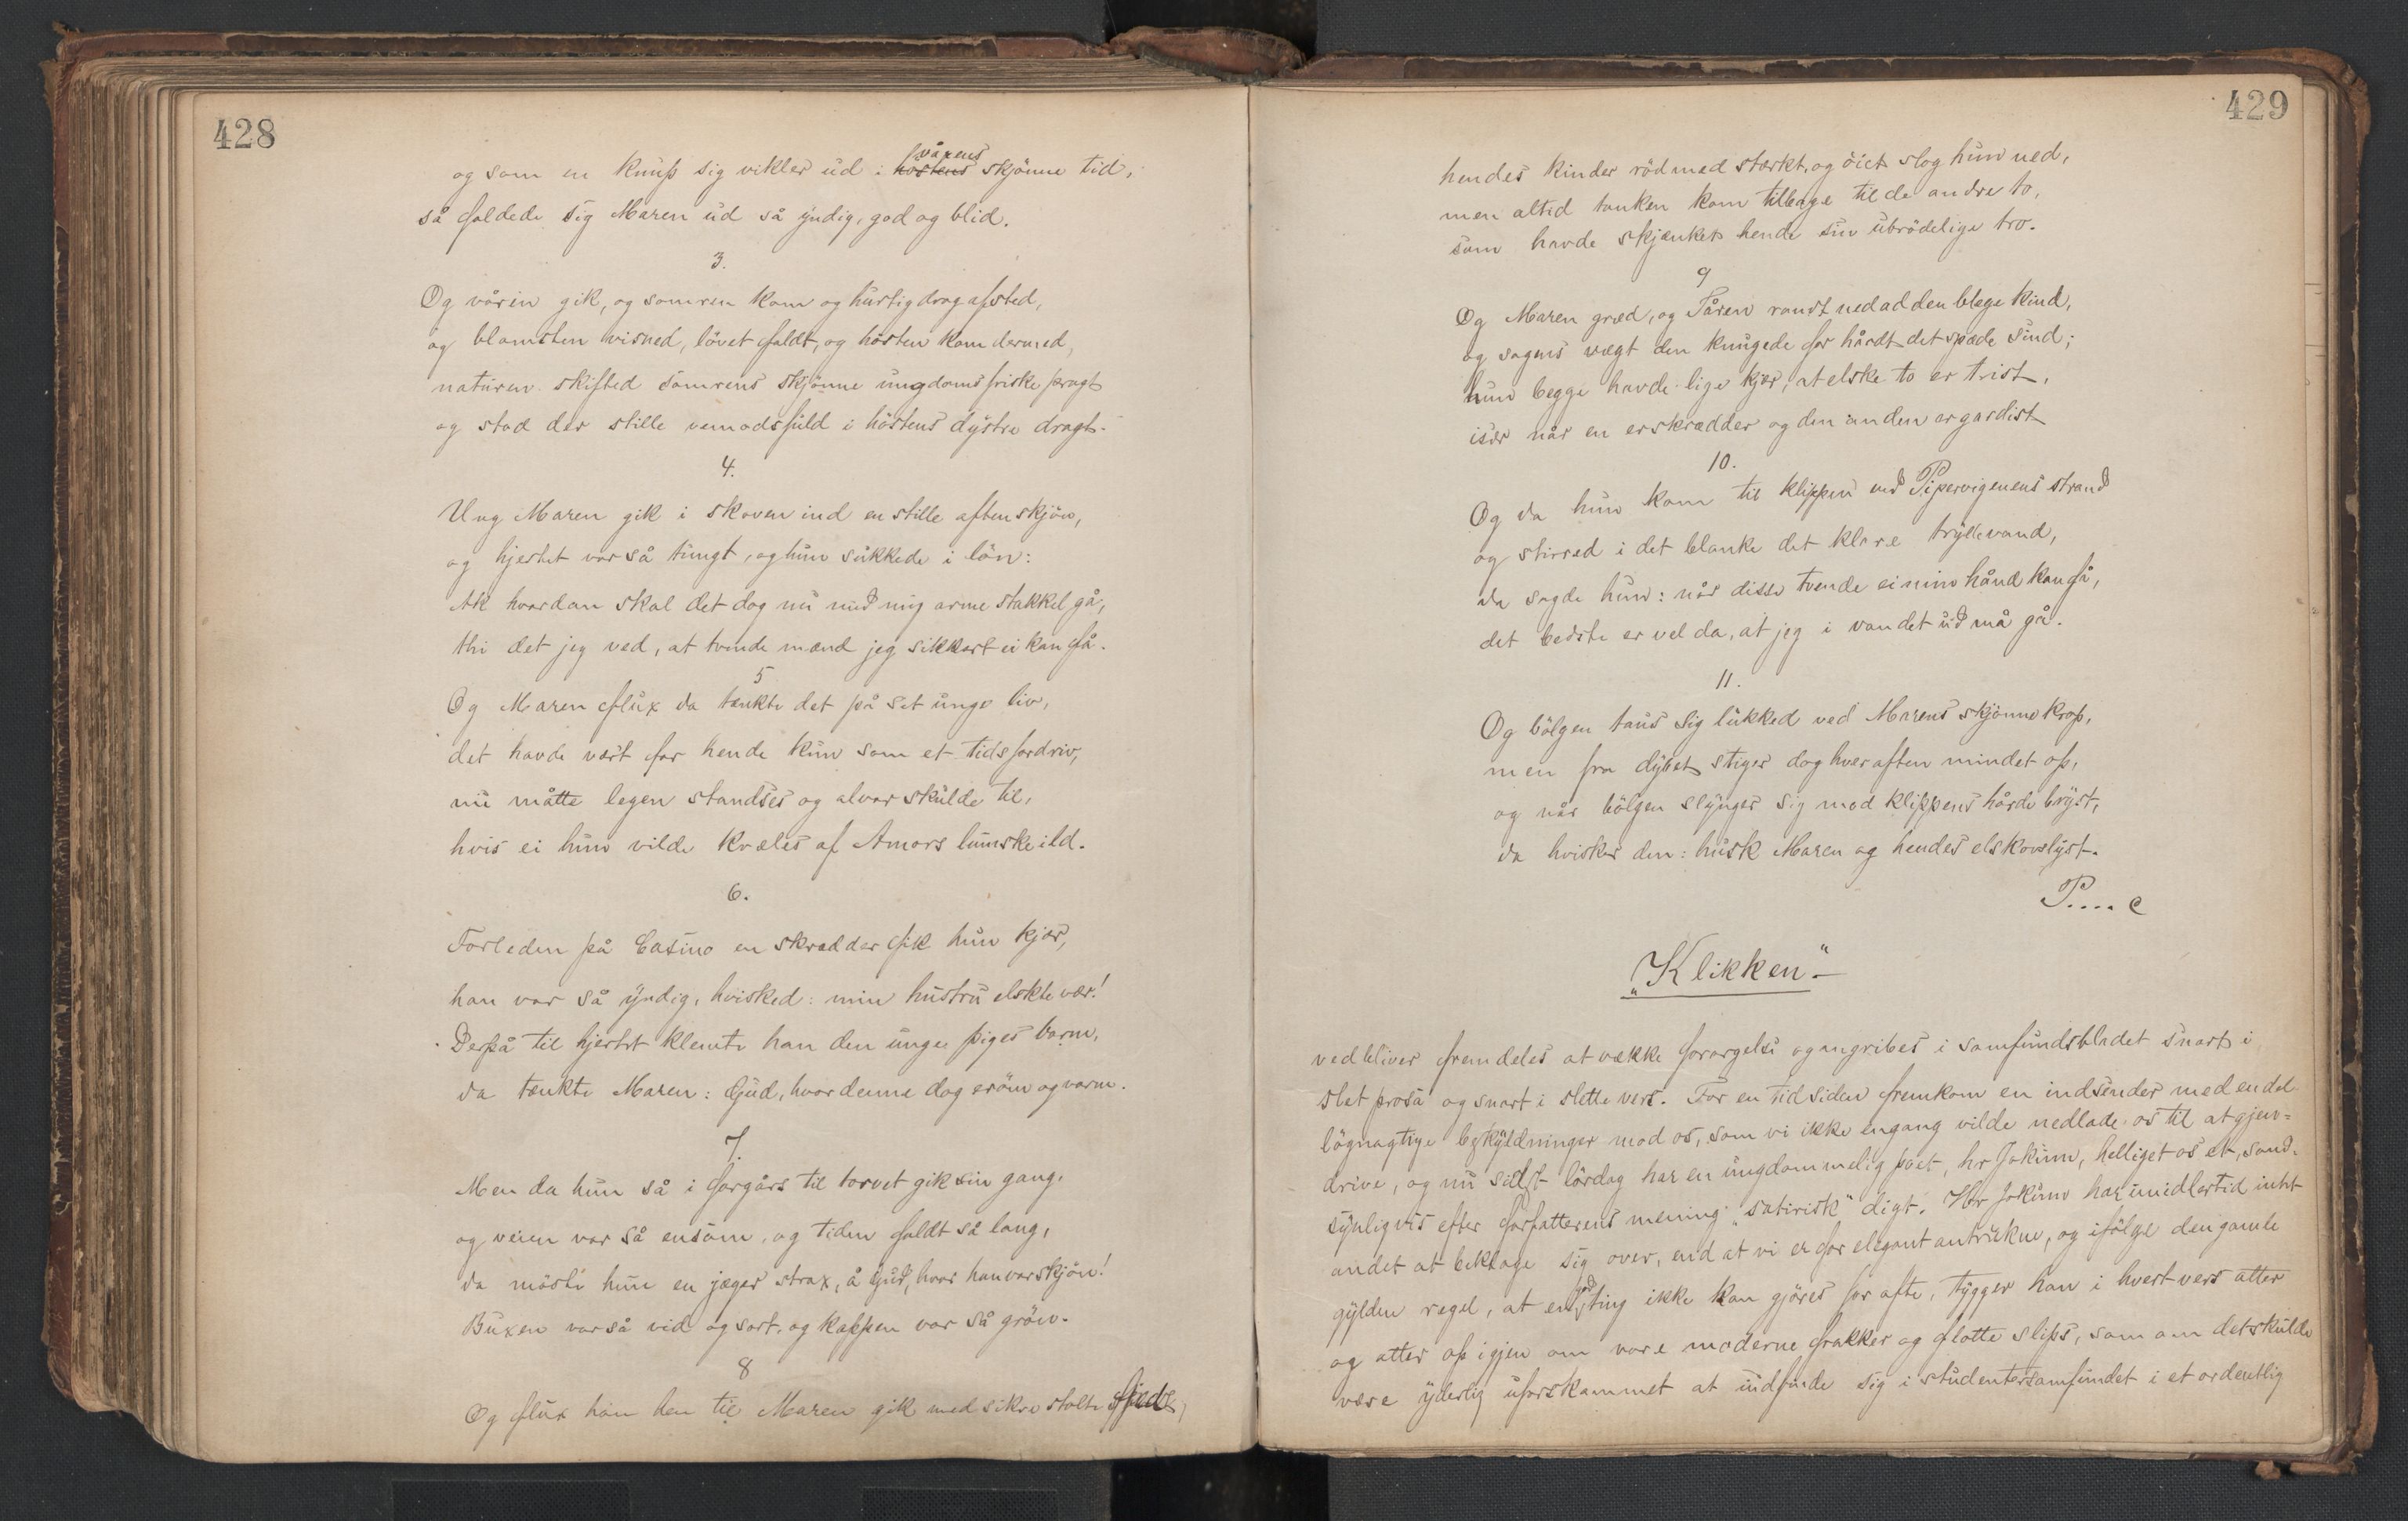 428
og som en knup sig vikler ud i vårens skjönne tid,
så foldede sig Maren ud så yndig, god og blid.
3.
Og våren gik, og somren kom og hurtig drog afsted,
og blomsten visned, lövet faldt, og hösten kom dermed,
naturen skifted somrens skjönne ungdomsfriske pragt
og stod der stille vemodsfuld i höstens dystre dragt.
4.
Ung Maren gik i skoven ind en stille aften skjön,
og hjertet var så tungt, og hun sukkede i lön:
Ak hvordan skal det dog nu med mig arme stakkel gå,
thi det jeg ved, at tvende mænd jeg sikkert ei kan få.
5
Og Maren flux da tænkte det på sit unge liv,
det havde vært for hende kun som et tidsfordriv,
nu måtte legen standses og alvor skulde til,
hvis ei hun vilde kvæles af Amors lumske ild.
6.
Forleden på Casino en skrædder fik hun kjær,
han var så yndig, hvisked: min hustru elskte vær!
Derpå til hjertet klemte han den unge piges barm,
da tænkte Maren: Gud, hvor denne dog er öm og varm.
7.
Men da hun så i forgårs til torvet gik sin gang,
og veien var så ensom, og tiden faldt så lang,
da mödte hun en jæger strax, å Gud, hvor han var skjön!
Buxen var så vid og sort, og kappen var så grön.
8
Og flux han hen til Maren gik med sikre stolte fjed,
429
hendes kinder rödmed stærkt, og öiet slog hun ned,
men altid tanken kom tilbage til de andre to,
som havde skjænket hende sin ubrödelige tro.
9
Og Maren græd, og Tåren randt nedad den blege kind,
og sagens vægt den knugede for hårdt det spæde sind;
hun begge havde lige kjær, at elske to er trist,
især når en er skrædder og den anden er gardist
10.
Og da hun kom til klippen ved Pipervigenens strand
og stirred i det blanke det klare tryllevand,
da sagde hun: når disse tvende ei min hånd kan få,
det bedste er vel da, at jeg i vandet ud må gå.
11.
Og bölgen taus sig lukked ved Marens skjönne krop,
men fra dybet stiger dog hver aften mindet op,
og når bölgen slynger sig mod klippens hårde bryst,
da hvisker den: husk Maren og hendes elskovslyst.
P.... e
"Klikken"
vedbliver fremdeles at vække forargelse og angribes i samfundsbladet snart i
slet prosa og snart i slette vers. For en tid siden fremkom en indsender med en del
lögnagtige beskyldninger mod os, som vi ikke engang vilde nedlade os til at gjen-
drive, og nu sidst lördag har en ungdommelig poet, hr Jokum, helliget os et, sand-
synligvis efter forfatterens mening "satirisk" digt. Hr Jokum har imidlertid intet
andet at beklage sig over, end at vi er for elegant antrukne, og ifölge den gamle
gylden regel, at en god ting ikke kan gjöres for ofte, tygger han i hvert vers atter
og atter op igjen om vore moderne frakker og flotte slips, som om det skulde
være yderlig uforskammet at indfinde sig i studentersamfundet i et ordentlig